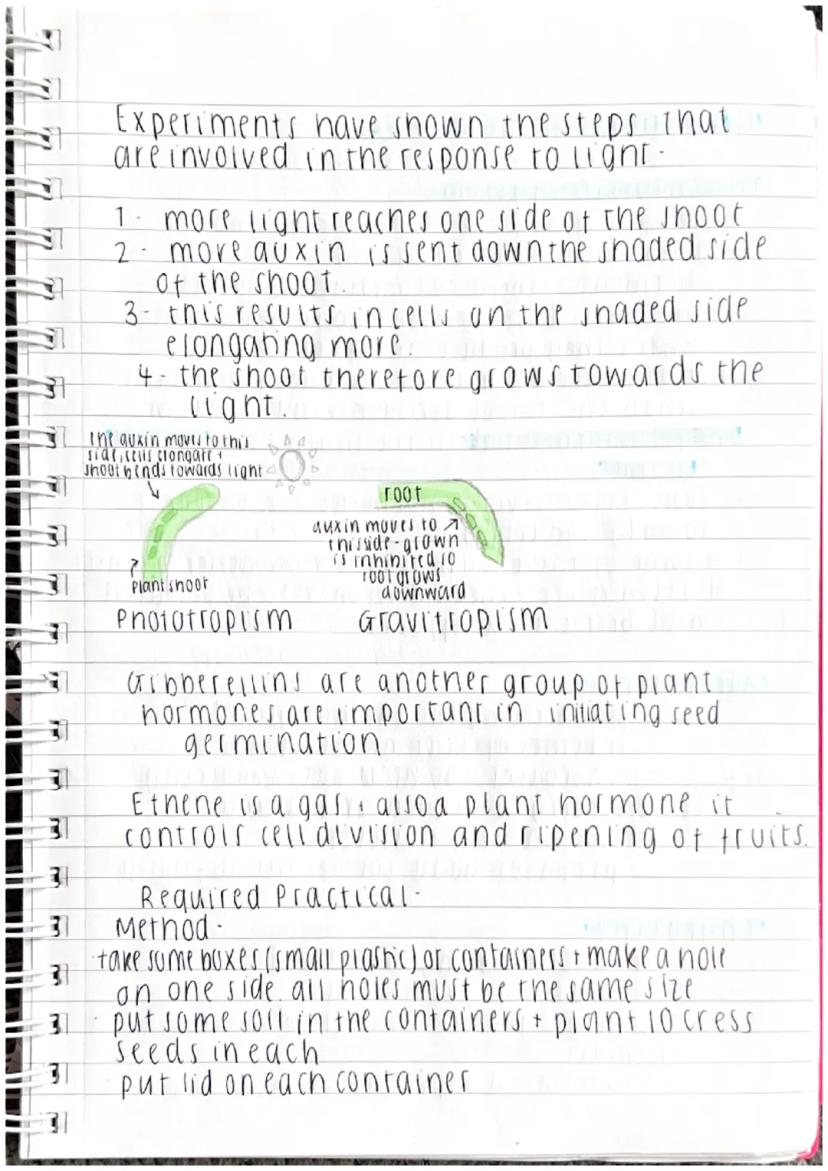 Experiments have shown the steps that
are involved in the response to light.
1. more light reaches one side of the shoot
2 - more auxin is sent down the shaded side
of the shoot.
3- this results in cells on the shaded side
elongating more.
4- the shoot therefore grows towards the
light.
the auxin moves to this
side, cells elongate +
shoot bends towards light
plant shoot
Phototropism
root
auxin moves to
this side - grown
is inhibited so
root grows
downward
Gravitropism
Gibberellins are another group of plant
hormones are important in initiating seed
germination
Ethene is a gas + also a plant hormone it
controls cell division and ripening of fruits.
Required Practical-
Method-
· take some boxes (small plastic) or containers + make a hole
on one side. all holes must be the same size
· put some soil in the containers + plant 10 cress
seeds in each
put lid on each container